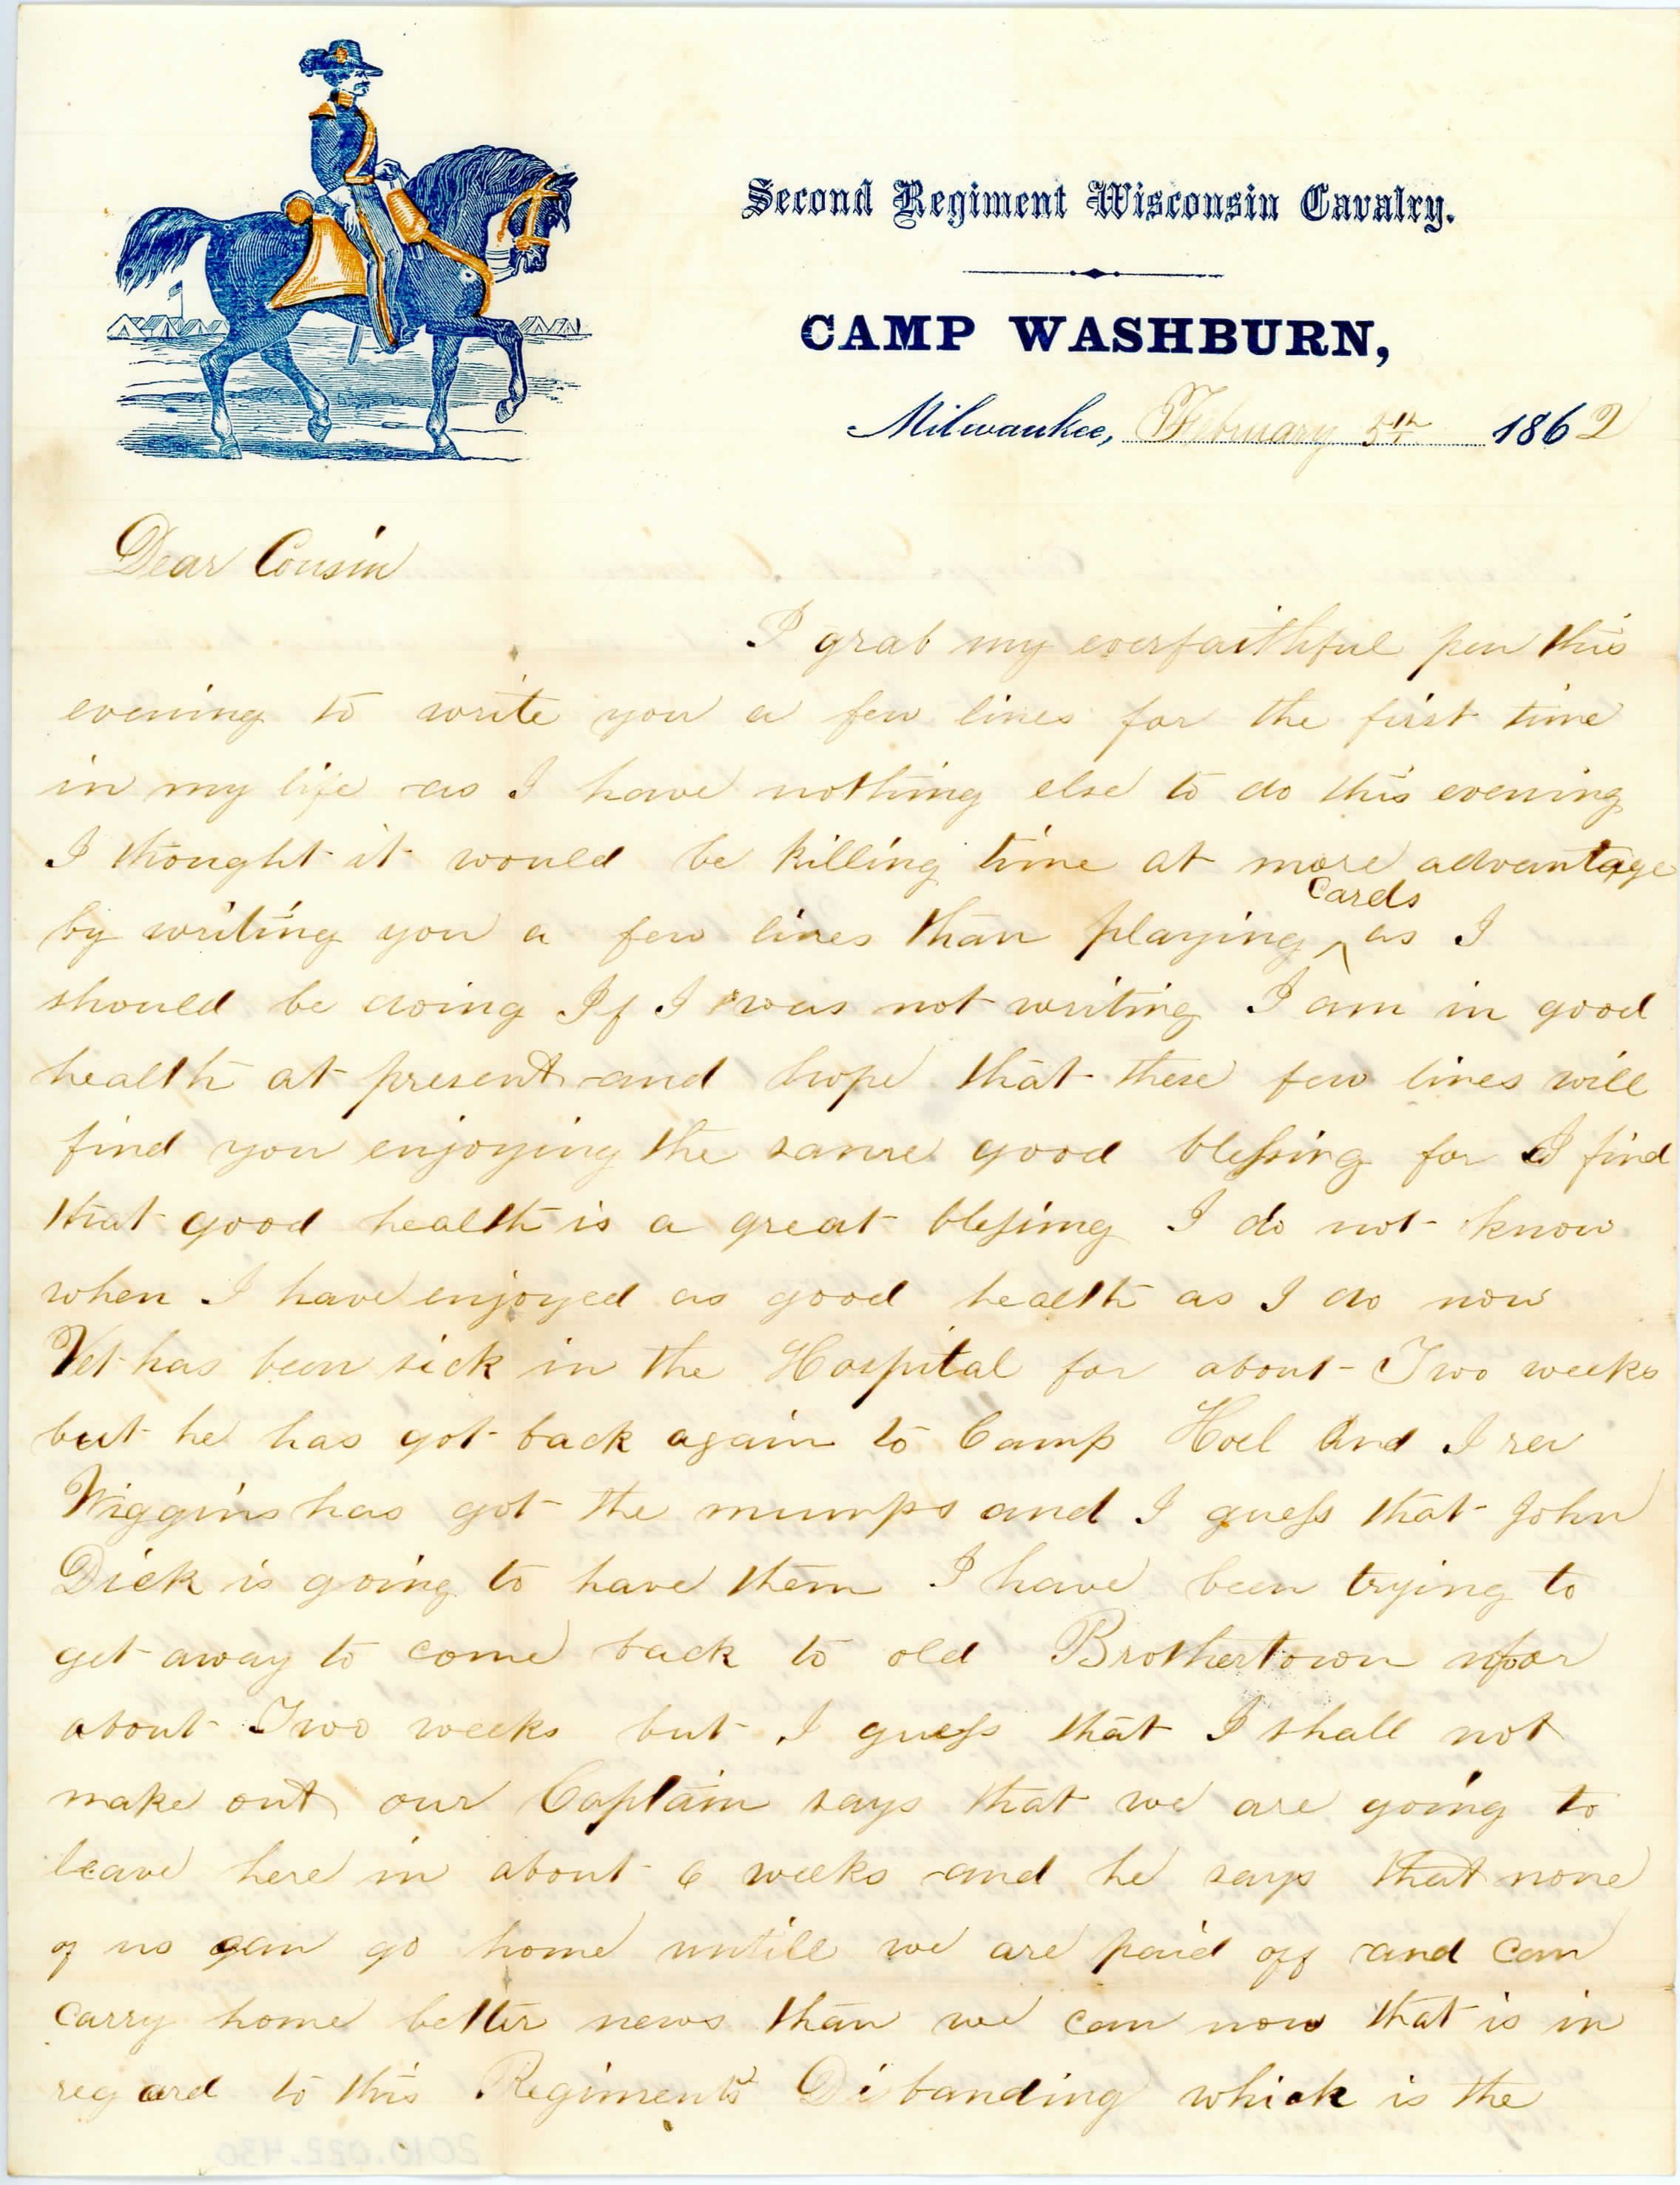 Second Regiment Wisconsin Cavalry.
CAMP WASHBURN,
Milwaukee, February 5th 1862
Dear Cousin
I grab my everfaithful pen this
evening to write you a few lines for the first time
in my life as I have nothing else to do this evening
I thought it would be killing time at more advantage
by writing you a few lines than playing ^ Cards as I
should be doing If I was not writing I am in good
health at present and hope that these few lines will
find you enjoying the same good blessing for I find
that good health is a great blessing I do not know
when I have enjoyed as good health as I do now
Vet has been sick in the Hospital for about Two weeks
but he has got back again to Camp Hoel And Ira
Wiggins has got the mumps and I guess that John
Dick is going to have them I have been trying to
get away to come back to old Brothertown for
about Two weeks but I guess that I shall not
make out our Captain says that we are going to
leave here in about 6 weeks and he says that none
of us can go home untill we are paid off and can
carry home better news than we can now that is in
regard to this Regiments Disbanding which is the
2010.022.430